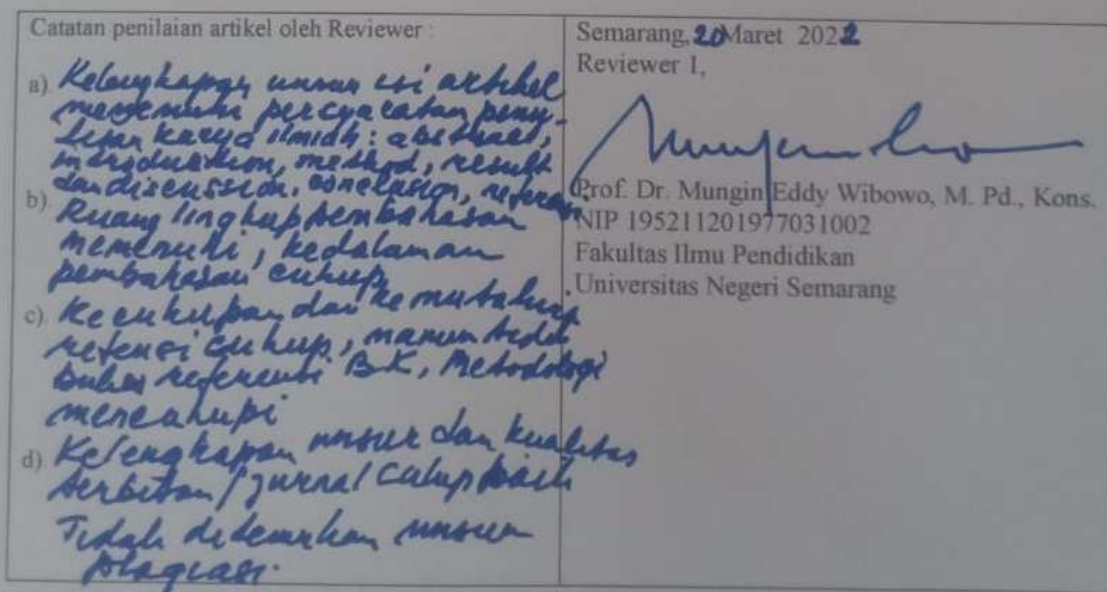 Catatan penilaian artikel oleh Reviewer :
a). Kelengkapan unsur isi artikel
memenuhi persyaratan penu-
lisan karya ilmiah: abstract,
introduction, method, result
dan discussion, conclusion, referen
b). Ruang lingkup pembahasan
memenuhi, kedalaman
pembahasan cukup
c). Kecukupan dan kemutahiran
refensi cukup, namun
buku referensi BK, Metodologi
mencukupi
d). Kelengkapan unsur dan kualitas
terbitan/jurnal cukup baik
Tidak ditemukan unsur
plagiasi.
Semarang, 20 Maret 2022
Reviewer 1,
Prof. Dr. Mungin Eddy Wibowo, M. Pd., Kons.
NIP 195211201977031002
Fakultas Ilmu Pendidikan
Universitas Negeri Semarang